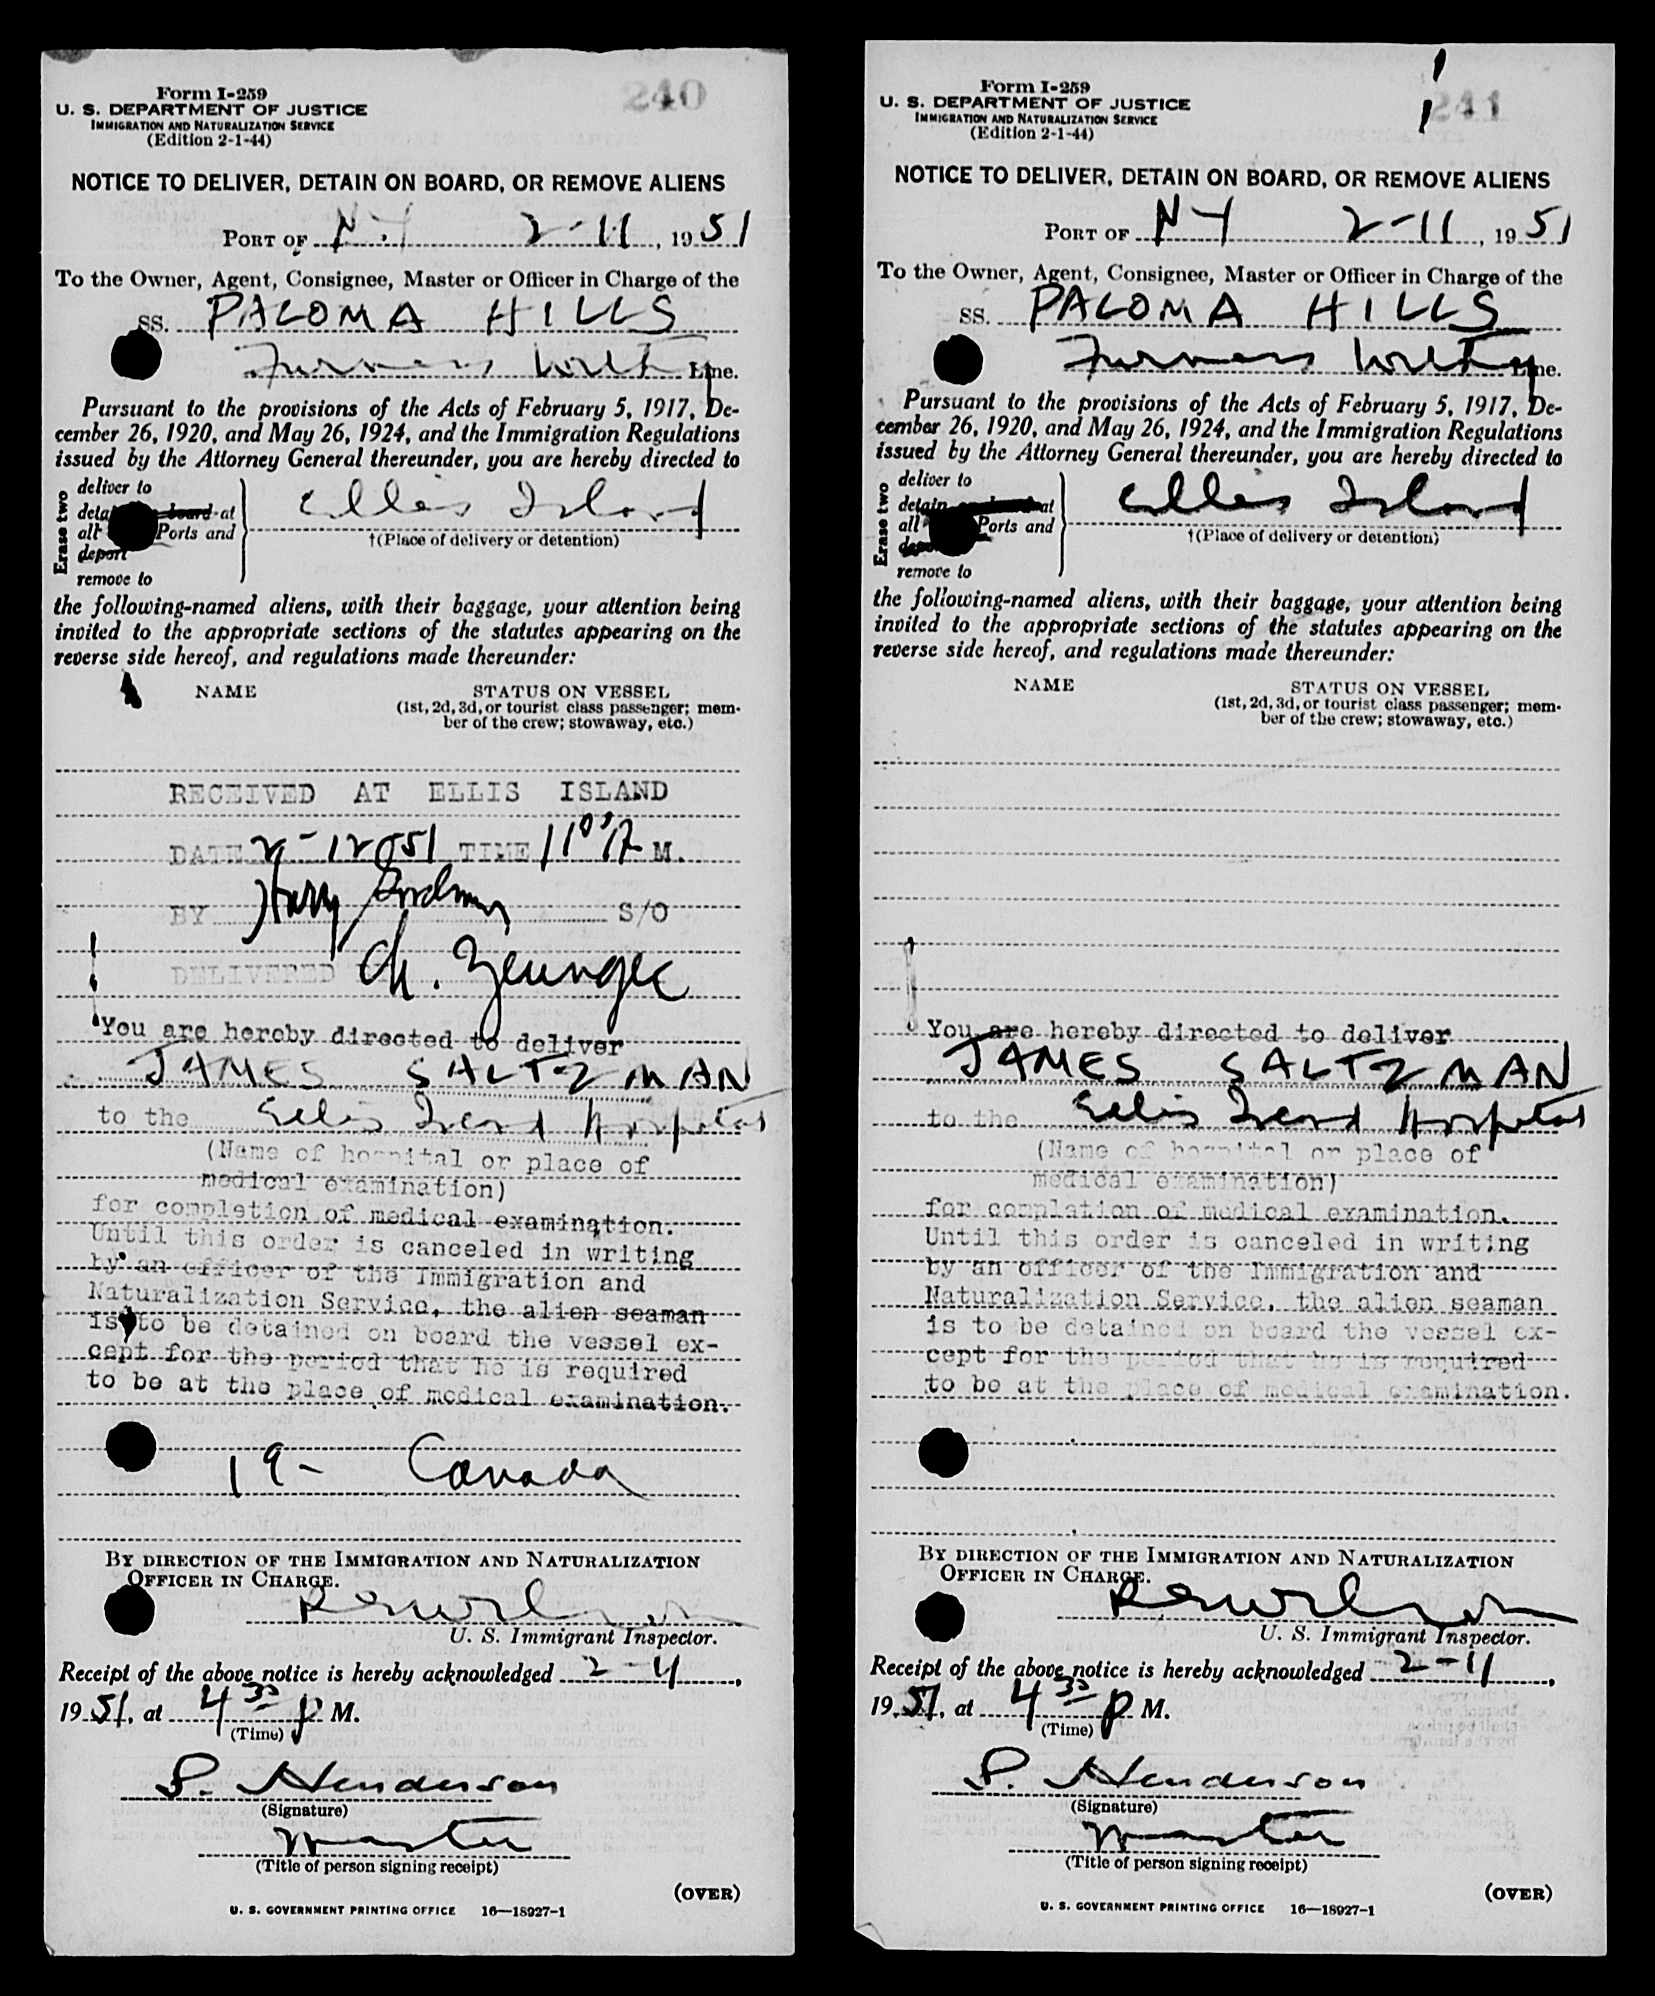 Form I-259
U. S. DEPARTMENT OF JUSTICE
IMMIGRATION AND NATURALIZATION SERVICE
(Edition 2-1-44)
240
NOTICE TO DELIVER, DETAIN ON BOARD, OR REMOVE ALIENS
PORT OF N.Y 2-11, 1951
To the Owner, Agent, Consignee, Master or Officer in Charge of the
SS. PALOMA HILLS
Furness Withy Line.
Pursuant to the provisions of the Acts of February 5, 1917, De-
cember 26, 1920, and May 26, 1924, and the Immigration Regulations
issued by the Attorney General thereunder, you are hereby directed to
Erase two
deliver to
board at
all Ports and
deport
remove to
Ellis Island
†(Place of delivery or detention)
the following-named aliens, with their baggage, your attention being
invited to the appropriate sections of the statutes appearing on the
reverse side hereof, and regulations made thereunder:
NAME STATUS ON VESSEL
(1st, 2d, 3d, or tourist class passenger; mem-
ber of the crew; stowaway, etc.)
RECEIVED AT ELLIS ISLAND
DATE 2-12-51 TIME 11 00 A M.
BY Harry S/O
DELIVERED Ch.
You are hereby directed to deliver
JAMES SALTZMAN
to the Ellis Island Hospital
(Name of hospital or place of
medical examination)
for completion of medical examination.
Until this order is canceled in writing
by an officer of the Immigration and
Naturalization Service, the alien seaman
is to be detained on board the vessel ex-
cept for the period that he is required
to be at the place of medical examination.
19- Canada
BY DIRECTION OF THE IMMIGRATION AND NATURALIZATION
OFFICER IN CHARGE.
U. S. Immigrant Inspector.
Receipt of the above notice is hereby acknowledged 2-11,
1951, at 4 30 P M.
(Time)
P. Henderson
(Signature)
Master
(Title of person signing receipt)
(OVER)
U. S. GOVERNMENT PRINTING OFFICE 16—18927-1
Form I-259
U. S. DEPARTMENT OF JUSTICE
IMMIGRATION AND NATURALIZATION SERVICE
(Edition 2-1-44)
241
NOTICE TO DELIVER, DETAIN ON BOARD, OR REMOVE ALIENS
PORT OF NY 2-11, 1951
To the Owner, Agent, Consignee, Master or Officer in Charge of the
SS. PALOMA HILLS
Furness Withy Line.
Pursuant to the provisions of the Acts of February 5, 1917, De-
cember 26, 1920, and May 26, 1924, and the Immigration Regulations
issued by the Attorney General thereunder, you are hereby directed to
Erase two
deliver to
detain at
all Ports and
remove to
Ellis Island
†(Place of delivery or detention)
the following-named aliens, with their baggage, your attention being
invited to the appropriate sections of the statutes appearing on the
reverse side hereof, and regulations made thereunder:
NAME STATUS ON VESSEL
(1st, 2d, 3d, or tourist class passenger; mem-
ber of the crew; stowaway, etc.)
You are hereby directed to deliver
JAMES SALTZMAN
to the Ellis Island Hospital
(Name of hospital or place of
medical examination)
for completion of medical examination.
Until this order is canceled in writing
by an officer of the Immigration and
Naturalization Service, the alien seaman
is to be detained on board the vessel ex-
cept for the period that he is required
to be at the place of medical examination.
BY DIRECTION OF THE IMMIGRATION AND NATURALIZATION
OFFICER IN CHARGE.
U. S. Immigrant Inspector.
Receipt of the above notice is hereby acknowledged 2-11,
1951, at 4 30 P M.
(Time)
P. Henderson
(Signature)
Master
(Title of person signing receipt)
(OVER)
U. S. GOVERNMENT PRINTING OFFICE 16—18927-1